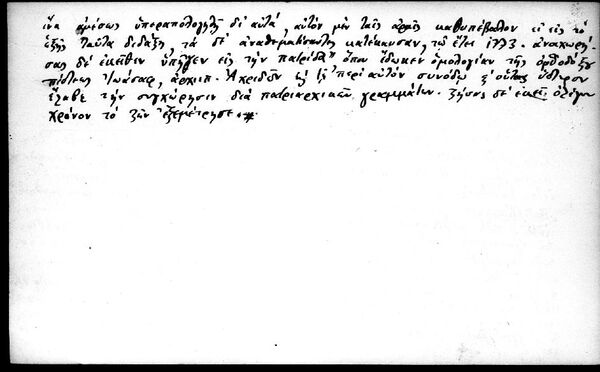 ἵνα ἀμέσως ὑπεραπολογηθῇ δι' αὐτά, αὐτὸν μὲν ταῖς ἀραῖς καθυπέβαλον εἰ εἰς τὸ
ἑξῆς ταῦτα διδάξῃ, τὰ δὲ ἀναθεματίσαντες κατέκαυσαν, τῷ ἔτει 1793. ἀναχωρή-
σας δὲ ἐκεῖθεν ὑπῆγεν εἰς τὴν πατρίδα ὅπου ἔδωκεν ὁμολογίαν τῆς ὀρθοδόξου
πίστεως Ἰωάσαφ, ἀρχιεπ. καὶ τῇ περὶ αὐτὸν συνόδῳ καὶ οὕτως ὕστερον
ἔλαβε τὴν συγχώρησιν διὰ πατριαρχικῶν γραμμάτων. ζήσας δὲ ἐκεῖ ὀλίγον
χρόνον τὸ ζῆν ἐξεμέτρησε.